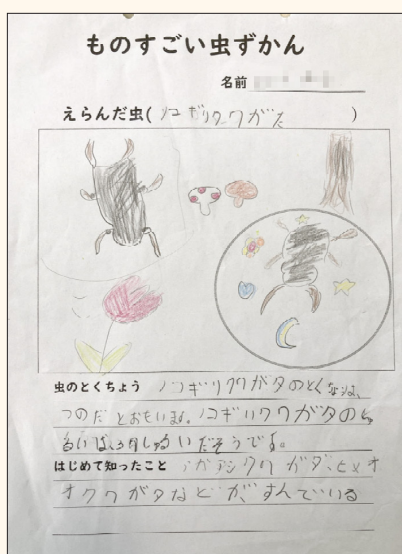 ものすごい虫ずかん
名前
えらんだ虫(ノコギリクワがた)
虫のとくちょう ノコギリクワガタのとくちょうは、
つのだとおもいます。ノコギリクワガタの
るいは、
しゅるいだそうです。
はじめて知ったこと クワガタ、ヒメオ
オクワガタなどが、すんでいる